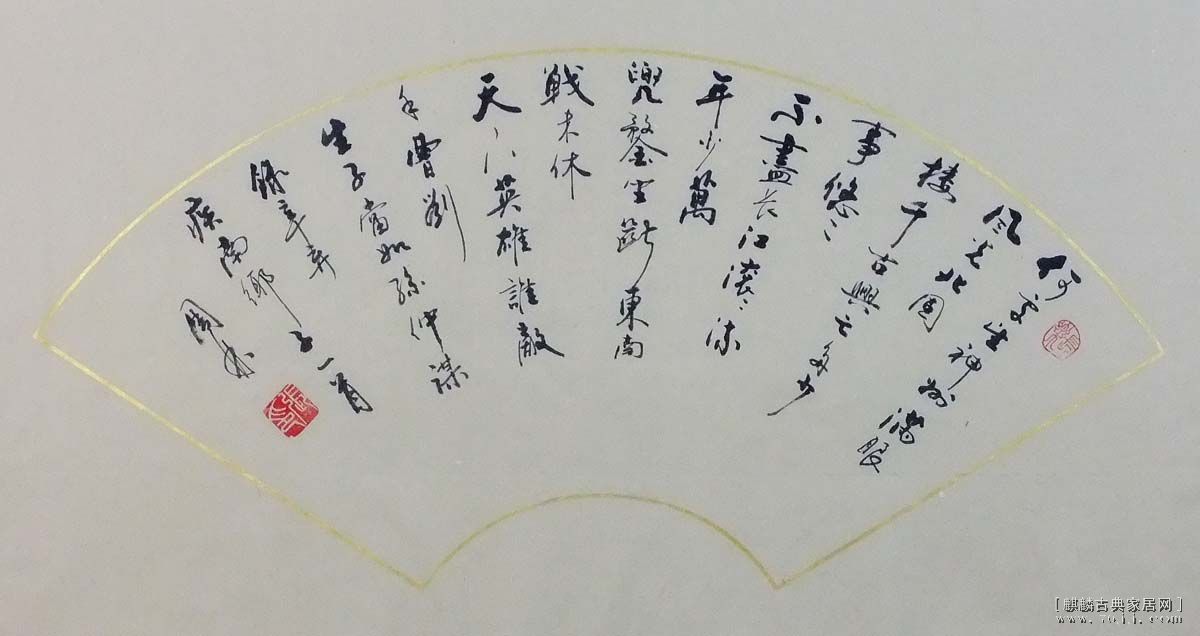 何处望神州滿眼
风光北固
楼千古興亡多少
事悠〻
不盡长江滚〻流
年少萬
兜鍪坐斷東南
戰未休
天下英雄誰敵
手曹劉
生子當如孫仲謀
錄辛弃
疾南鄉子一首
[麒麟古典家居网]